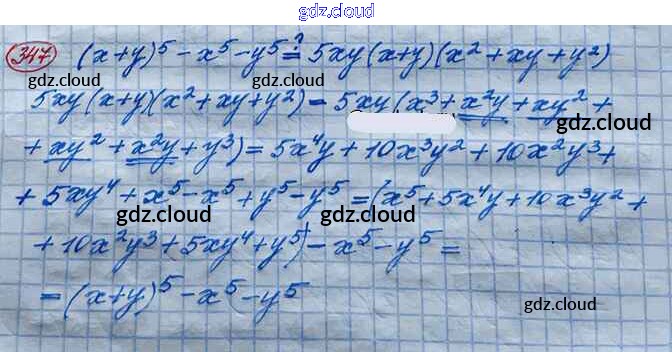 gdz.cloud
gdz.cloud
347 (x+y)⁵-x⁵-y⁵ ?= 5xy(x+y)(x²+xy+y²)
gdz.cloud gdz.cloud
5xy(x+y)(x²+xy+y²) = 5xy(x³+x²y+xy²+
gdz.cloud
+xy²+x²y+y³) = 5x⁴y+10x³y²+10x²y³+
gdz.cloud
+5xy⁴+x⁵-x⁵+y⁵-y⁵ = (x⁵+5x⁴y+10x³y²+
gdz.cloud gdz.cloud
+10x²y³+5xy⁴+y⁵)-x⁵-y⁵ =
gdz.cloud
= (x+y)⁵-x⁵-y⁵
gdz.cloud